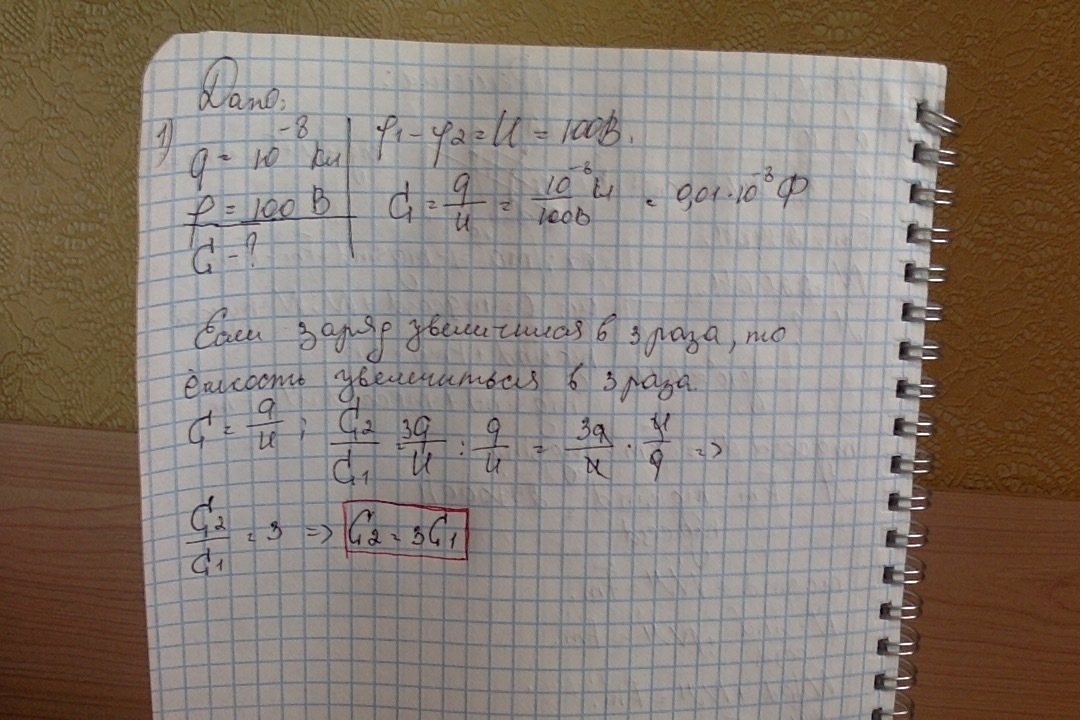 Дано:
1) q = 10⁻⁸ Кл
φ = 100 В
C - ?
φ1 - φ2 = U = 100В.
C = q/U = 10⁻⁸ Кл/100В = 0,01·10⁻⁸ Ф
Если заряд увеличился в 3 раза, то
ёмкость увеличиться в 3 раза.
C = q/U ; C2/C1 = 3q/U : q/U = 3q/U · U/q =>
C2/C1 = 3 => C2 = 3C1